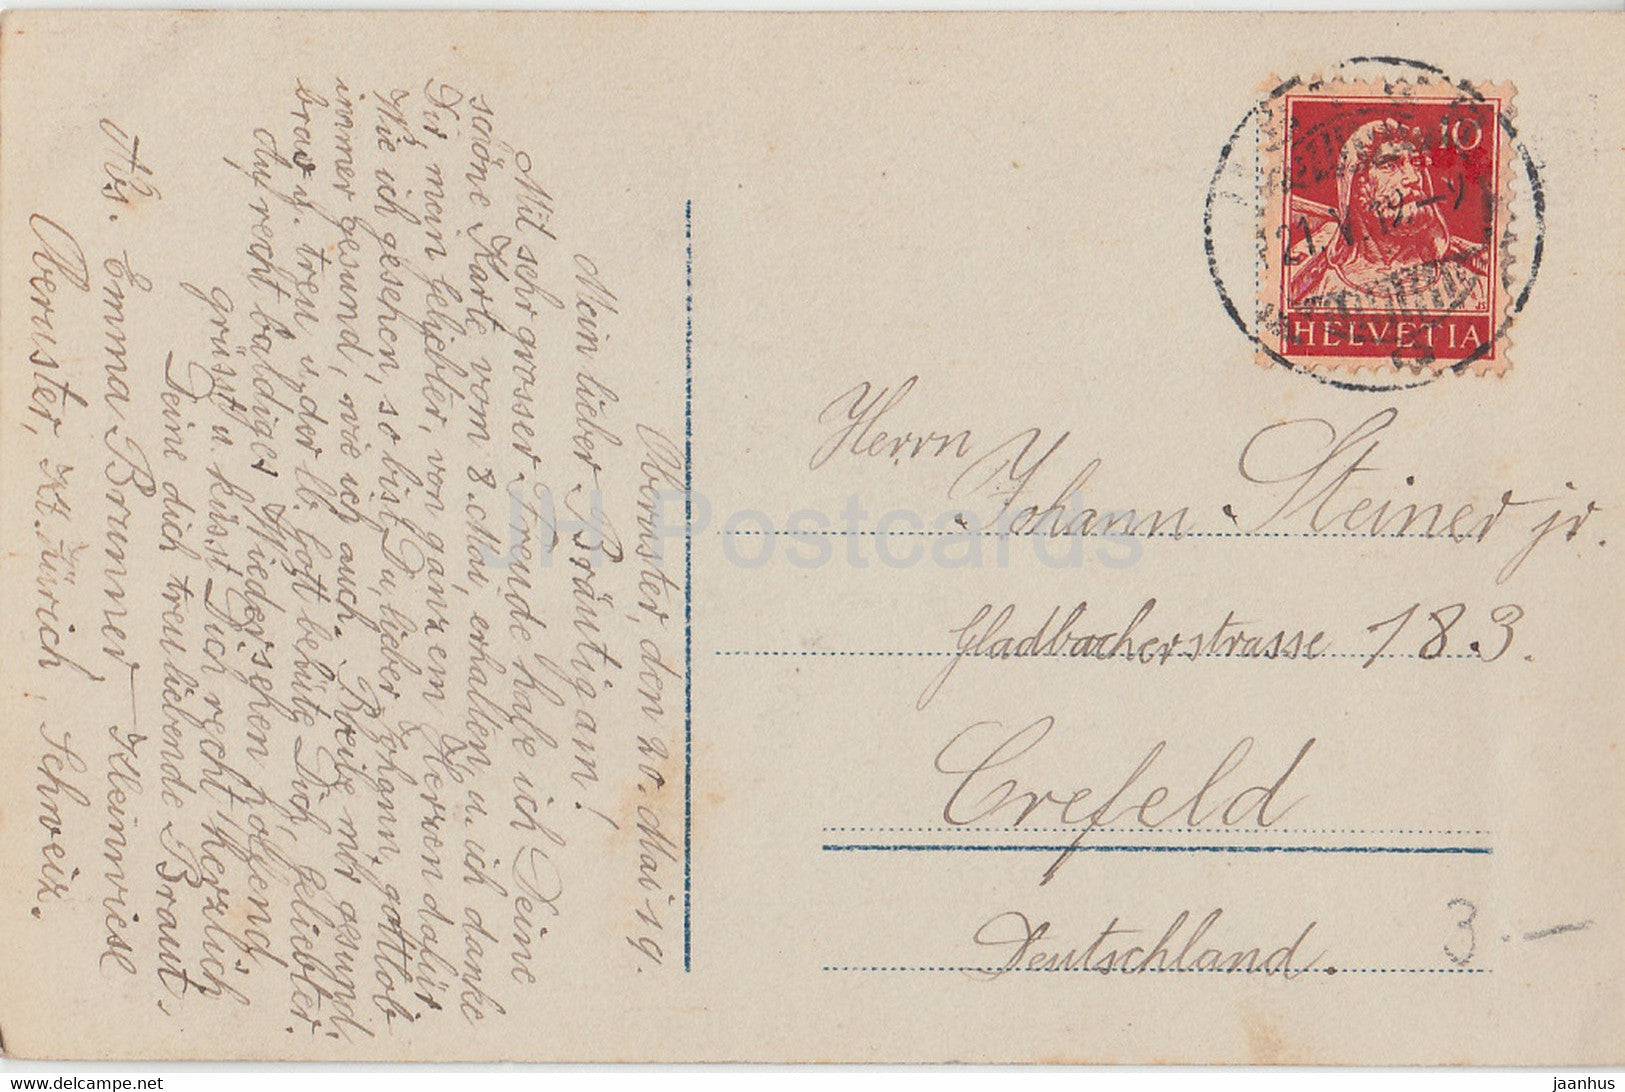 Oberuster, den 20. Mai 19.
Mein lieber Bräutigam!
Mit sehr grosser Freude habe ich Deine
schöne Karte vom 8. Mai, erhalten, u. ich danke
Dir, mein Geliebter, von ganzem Herzen dafür.
Wie ich gesehen, so bist Du, lieber Johann, gottlob
immer gesund, wie ich auch. Bleibe mir gesund,
brav u. treu, u. der lb. Gott behüte Dich, Geliebter.
Auf recht baldiges Wiedersehen hoffend,
grüsst u. küsst Dich recht herzlich
Deine dich treu liebende Braut.
Abs. Emma Brunner, Kleinwiese
Oberuster, Kt. Zürich, Schweiz.
10
HELVETIA
21. V. 19.
Herrn
Johann Steiner jr.
Gladbacherstrasse 183.
Crefeld
Deutschland.
3.—
JH Postcards
www.delcampe.net
jaanhus